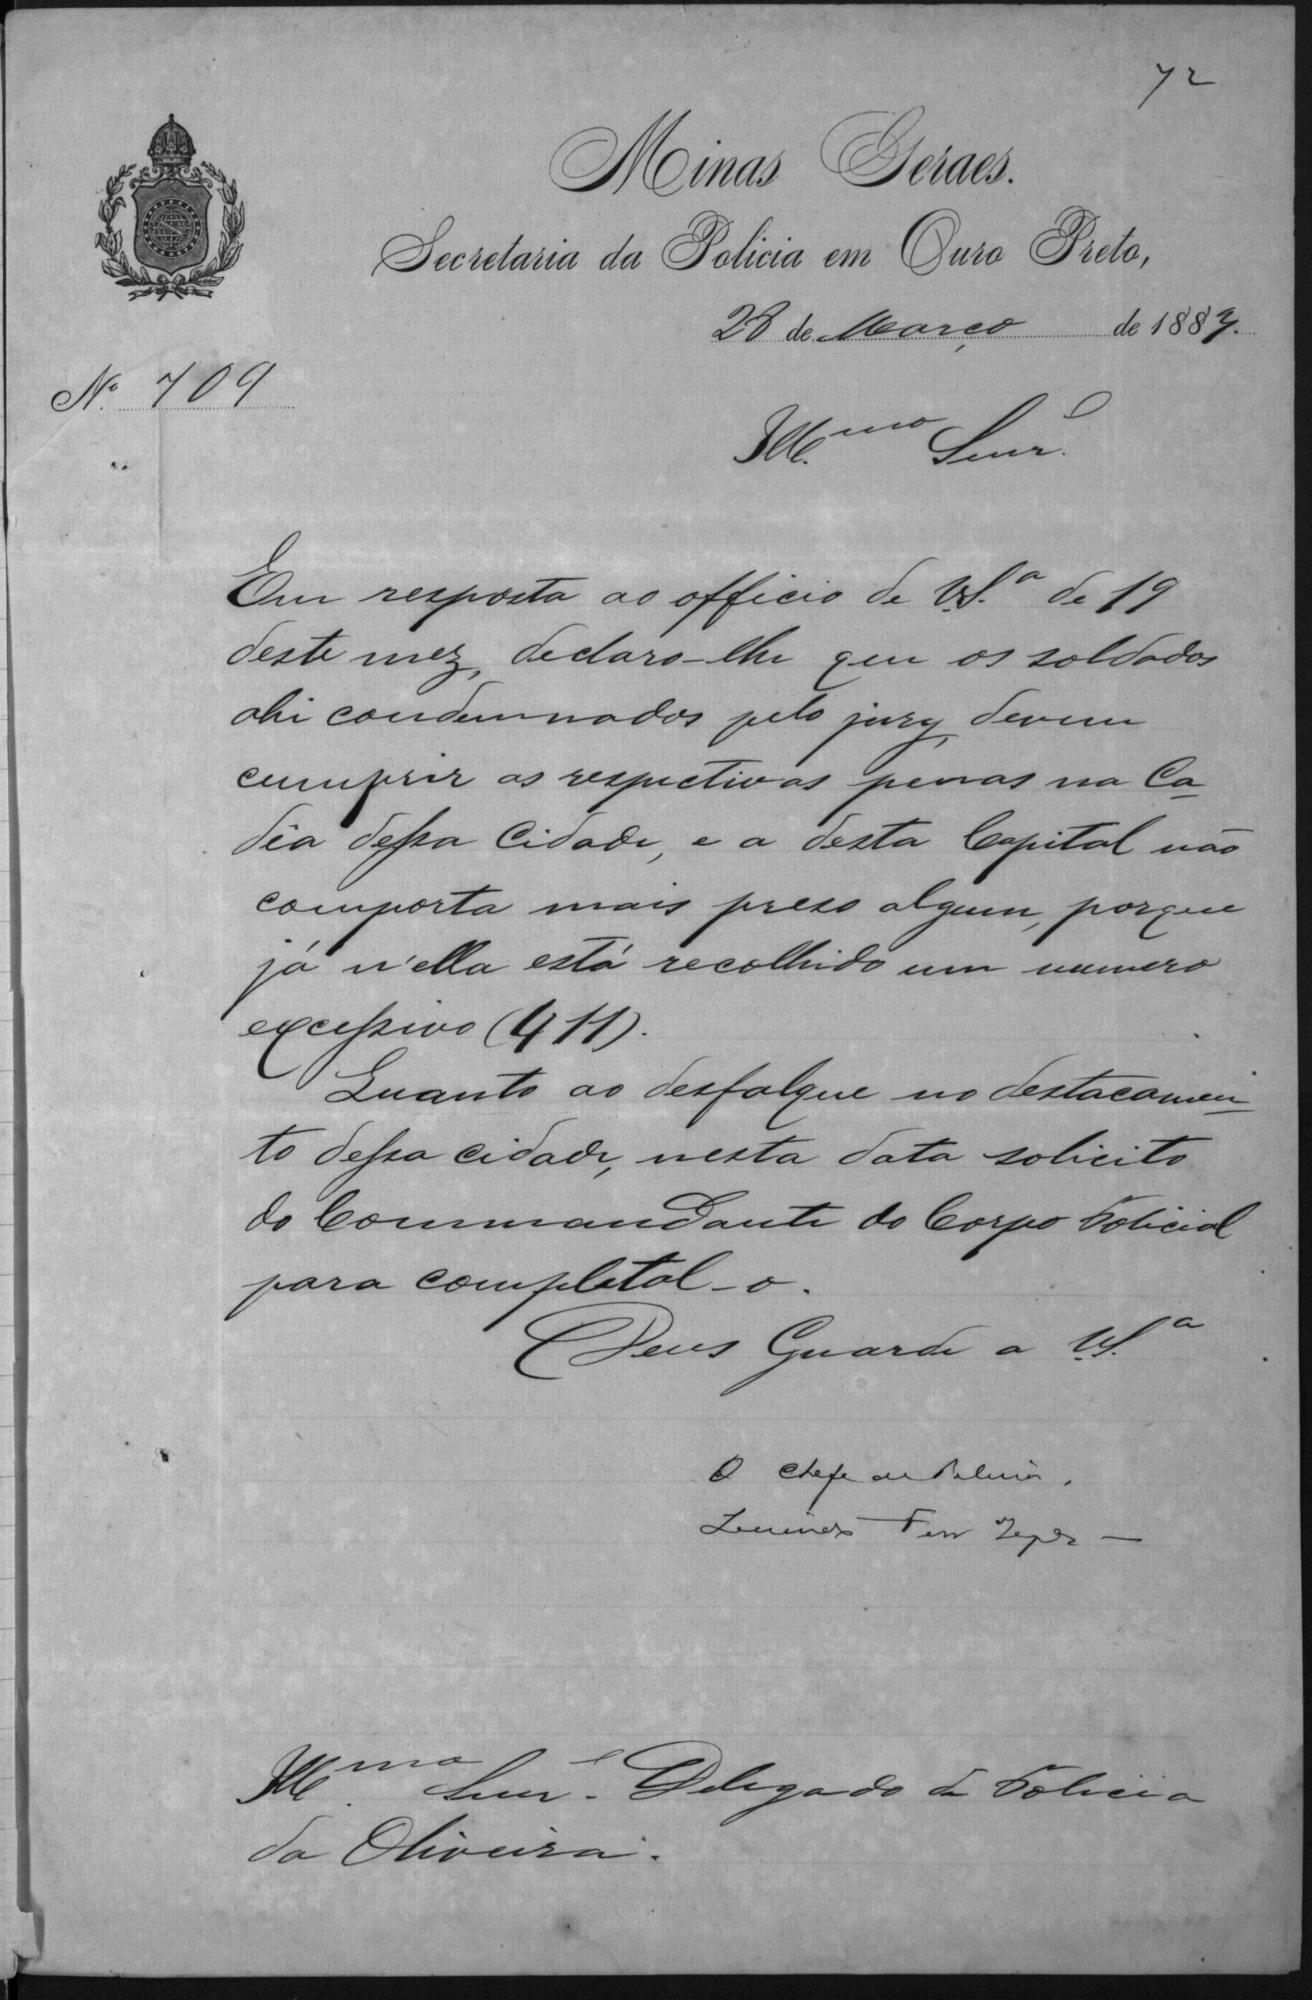 72
Minas Geraes.
Secretaria da Policia em Ouro Preto,
28 de Março de 1887.
N.º 709
Ill.mo Senr.
Em resposta ao officio de V.S.ª de 19
deste mez, declaro-lhe que os soldados
ahi condemnados pelo jury, devem
cumprir as respectivas penas na Ca-
dêa dessa Cidade, e a desta Capital não
comporta mais preso algum, porque
já n'ella está recolhido um numero
excessivo (411).
Quanto ao desfalque no destacamen-
to dessa cidade, nesta data solicito
do Commandante do Corpo Policial
para completal-o.
Deus Guarde a V.S.ª
O Chefe de Policia,
Ill.mo Senr. Delegado de Policia
da Oliveira.